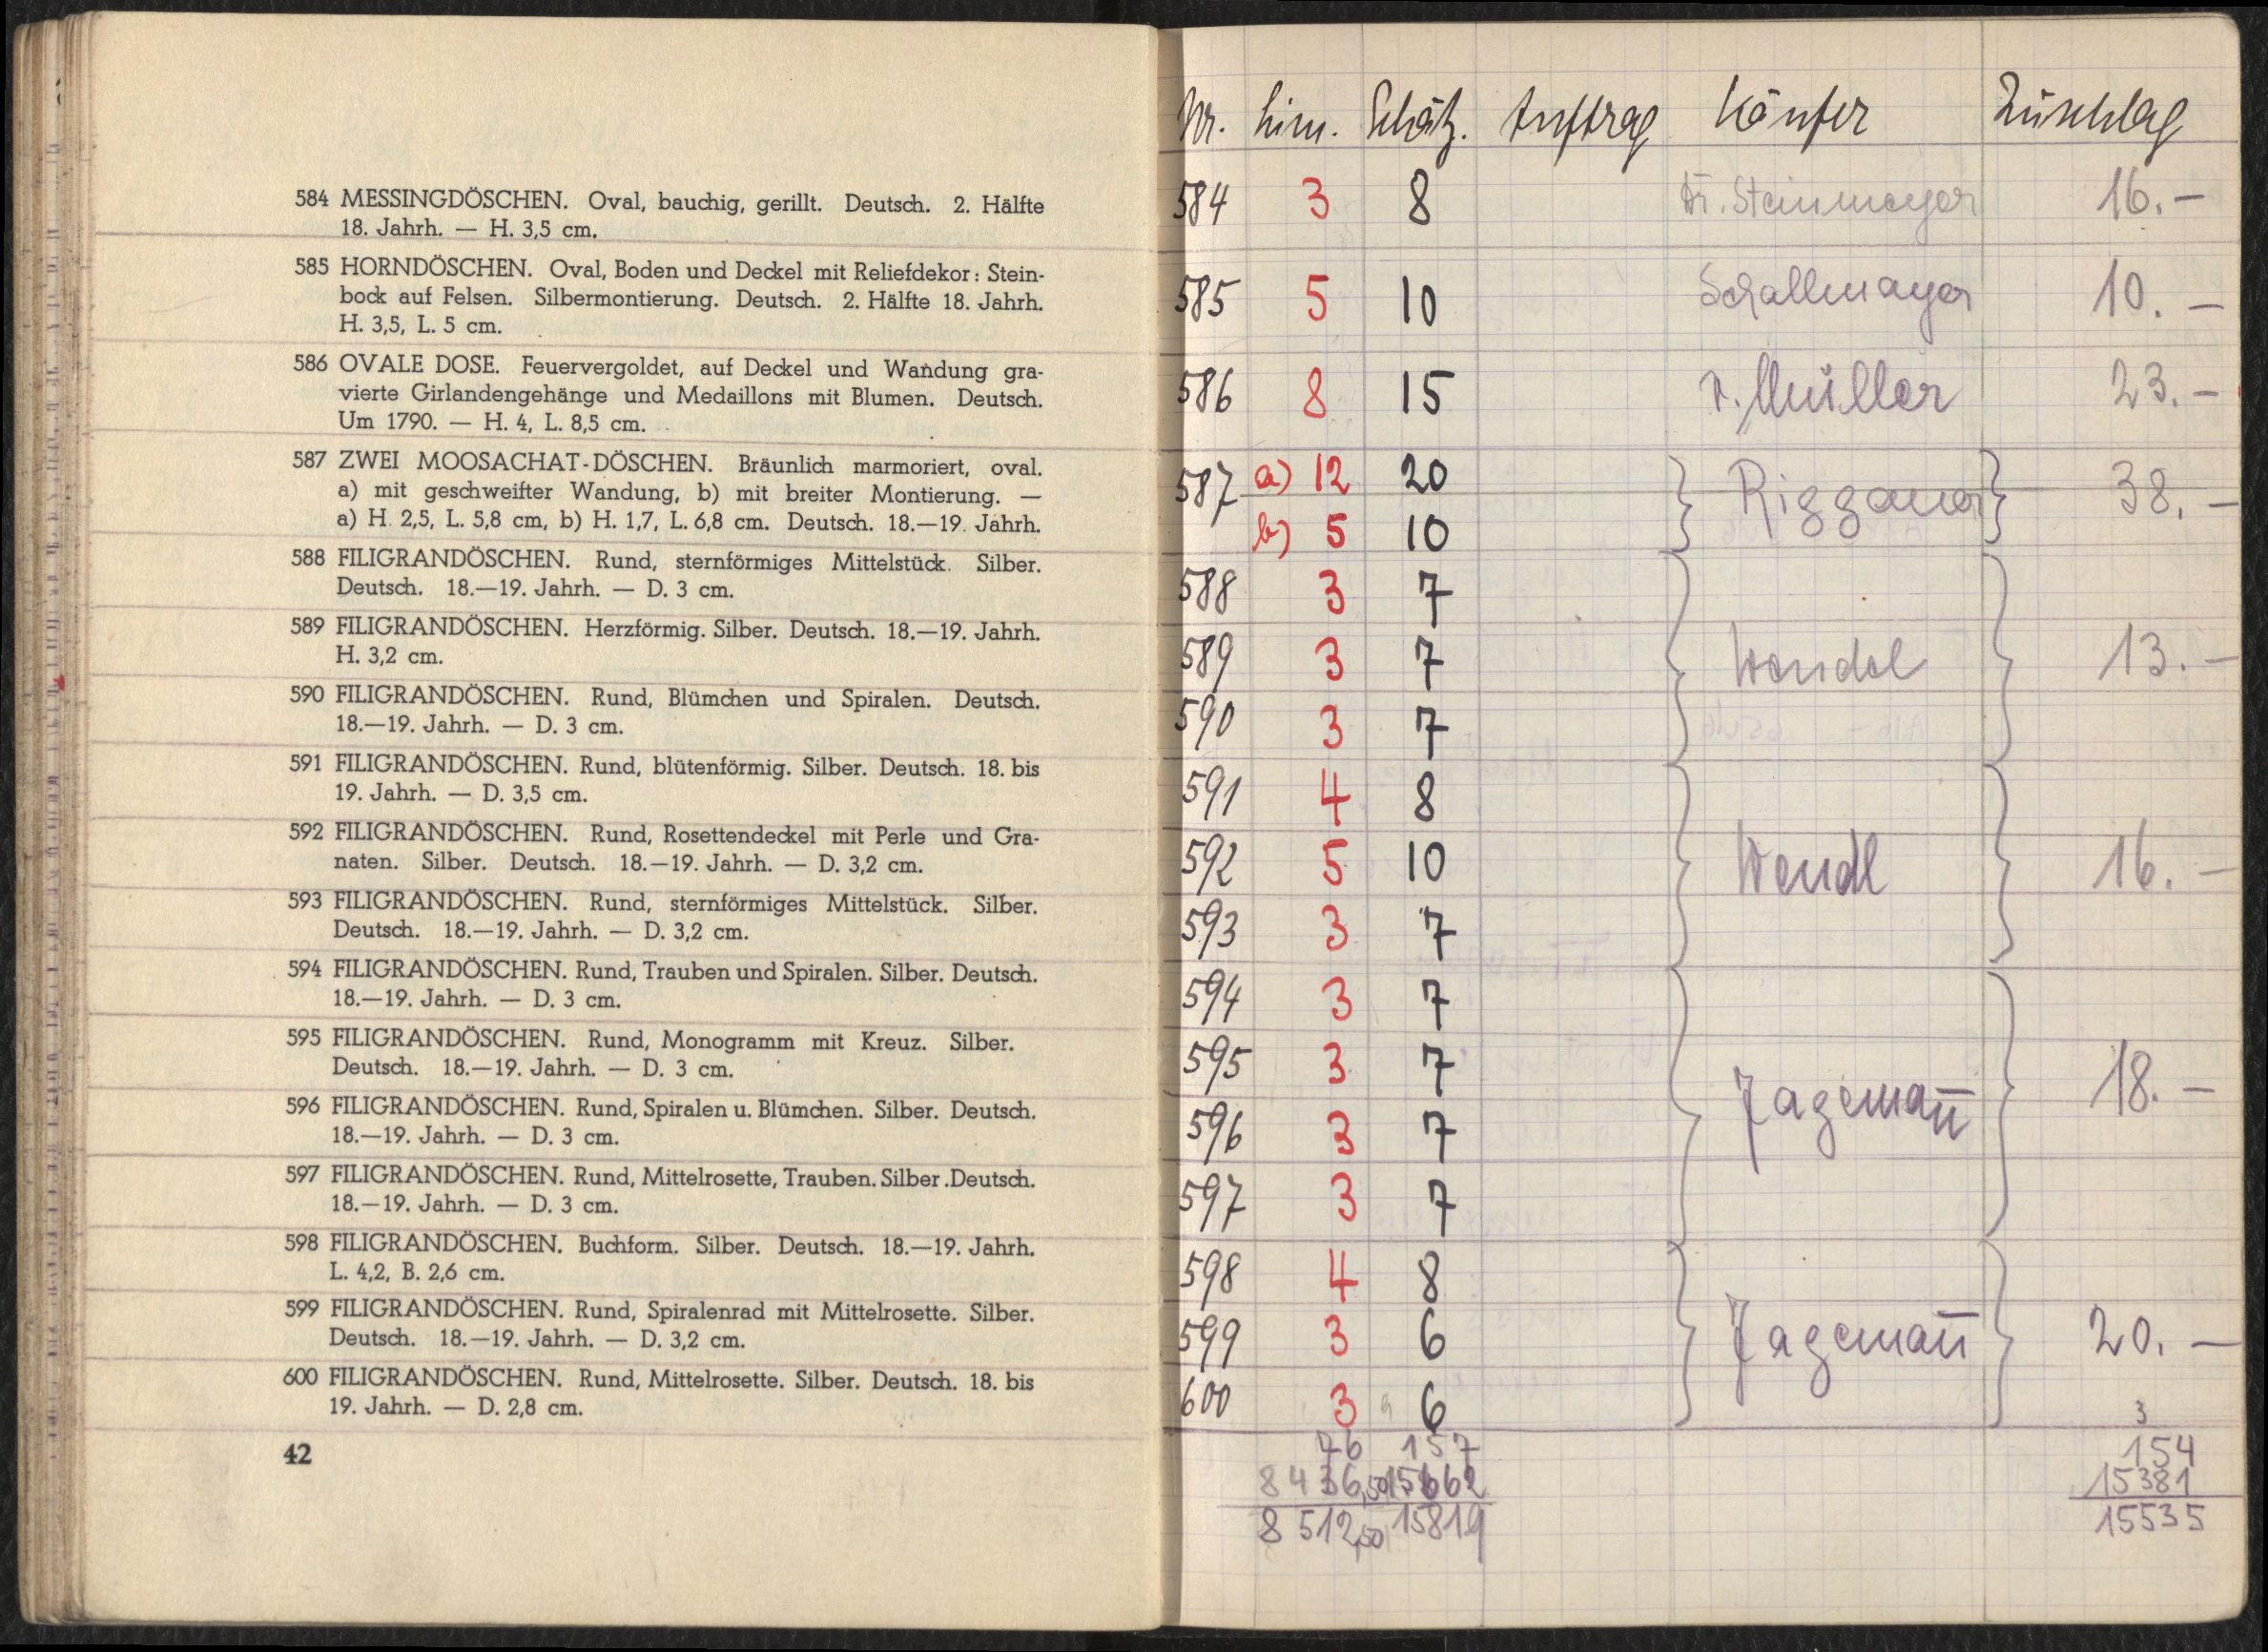 584 MESSINGDÖSCHEN. Oval, bauchig, gerillt. Deutsch. 2. Hälfte
18. Jahrh. — H. 3,5 cm.
585 HORNDÖSCHEN. Oval, Boden und Deckel mit Reliefdekor: Stein-
bock auf Felsen. Silbermontierung. Deutsch. 2. Hälfte 18. Jahrh.
H. 3,5, L. 5 cm.
586 OVALE DOSE. Feuervergoldet, auf Deckel und Wandung gra-
vierte Girlandengehänge und Medaillons mit Blumen. Deutsch.
Um 1790. — H. 4, L. 8,5 cm.
587 ZWEI MOOSACHAT-DÖSCHEN. Bräunlich marmoriert, oval.
a) mit geschweifter Wandung, b) mit breiter Montierung. —
a) H. 2,5, L. 5,8 cm, b) H. 1,7, L. 6,8 cm. Deutsch. 18.—19. Jahrh.
588 FILIGRANDÖSCHEN. Rund, sternförmiges Mittelstück. Silber.
Deutsch. 18.—19. Jahrh. — D. 3 cm.
589 FILIGRANDÖSCHEN. Herzförmig. Silber. Deutsch. 18.—19. Jahrh.
H. 3,2 cm.
590 FILIGRANDÖSCHEN. Rund, Blümchen und Spiralen. Deutsch.
18.—19. Jahrh. — D. 3 cm.
591 FILIGRANDÖSCHEN. Rund, blütenförmig. Silber. Deutsch. 18. bis
19. Jahrh. — D. 3,5 cm.
592 FILIGRANDÖSCHEN. Rund, Rosettendeckel mit Perle und Gra-
naten. Silber. Deutsch. 18.—19. Jahrh. — D. 3,2 cm.
593 FILIGRANDÖSCHEN. Rund, sternförmiges Mittelstück. Silber.
Deutsch. 18.—19. Jahrh. — D. 3,2 cm.
594 FILIGRANDÖSCHEN. Rund, Trauben und Spiralen. Silber. Deutsch.
18.—19. Jahrh. — D. 3 cm.
595 FILIGRANDÖSCHEN. Rund, Monogramm mit Kreuz. Silber.
Deutsch. 18.—19. Jahrh. — D. 3 cm.
596 FILIGRANDÖSCHEN. Rund, Spiralen u. Blümchen. Silber. Deutsch.
18.—19. Jahrh. — D. 3 cm.
597 FILIGRANDÖSCHEN. Rund, Mittelrosette, Trauben. Silber .Deutsch.
18.—19. Jahrh. — D. 3 cm.
598 FILIGRANDÖSCHEN. Buchform. Silber. Deutsch. 18.—19. Jahrh.
L. 4,2, B. 2,6 cm.
599 FILIGRANDÖSCHEN. Rund, Spiralenrad mit Mittelrosette. Silber.
Deutsch. 18.—19. Jahrh. — D. 3,2 cm.
600 FILIGRANDÖSCHEN. Rund, Mittelrosette. Silber. Deutsch. 18. bis
19. Jahrh. — D. 2,8 cm.
42
Nr. Lim. Schätz. Auftrag Käufer Zuschlag
584 3 8 Dr. Steinmeyer 16.—
585 5 10 Schallmayer 10.—
586 8 15 Müller 23.—
587 a) 12 20 Riggauer 38.—
b) 5 10
588 3 7
589 3 7 Wendel 13.—
590 3 7
591 4 8
592 5 10 Wendl 16.—
593 3 7
594 3 7
595 3 7 Jagemañ 18.—
596 3 7
597 3 7
598 4 8
599 3 6 Jagemañ 20.—
600 3 6
3
76 157 154
8436,50 15662 15381
8512,50 15819 15535